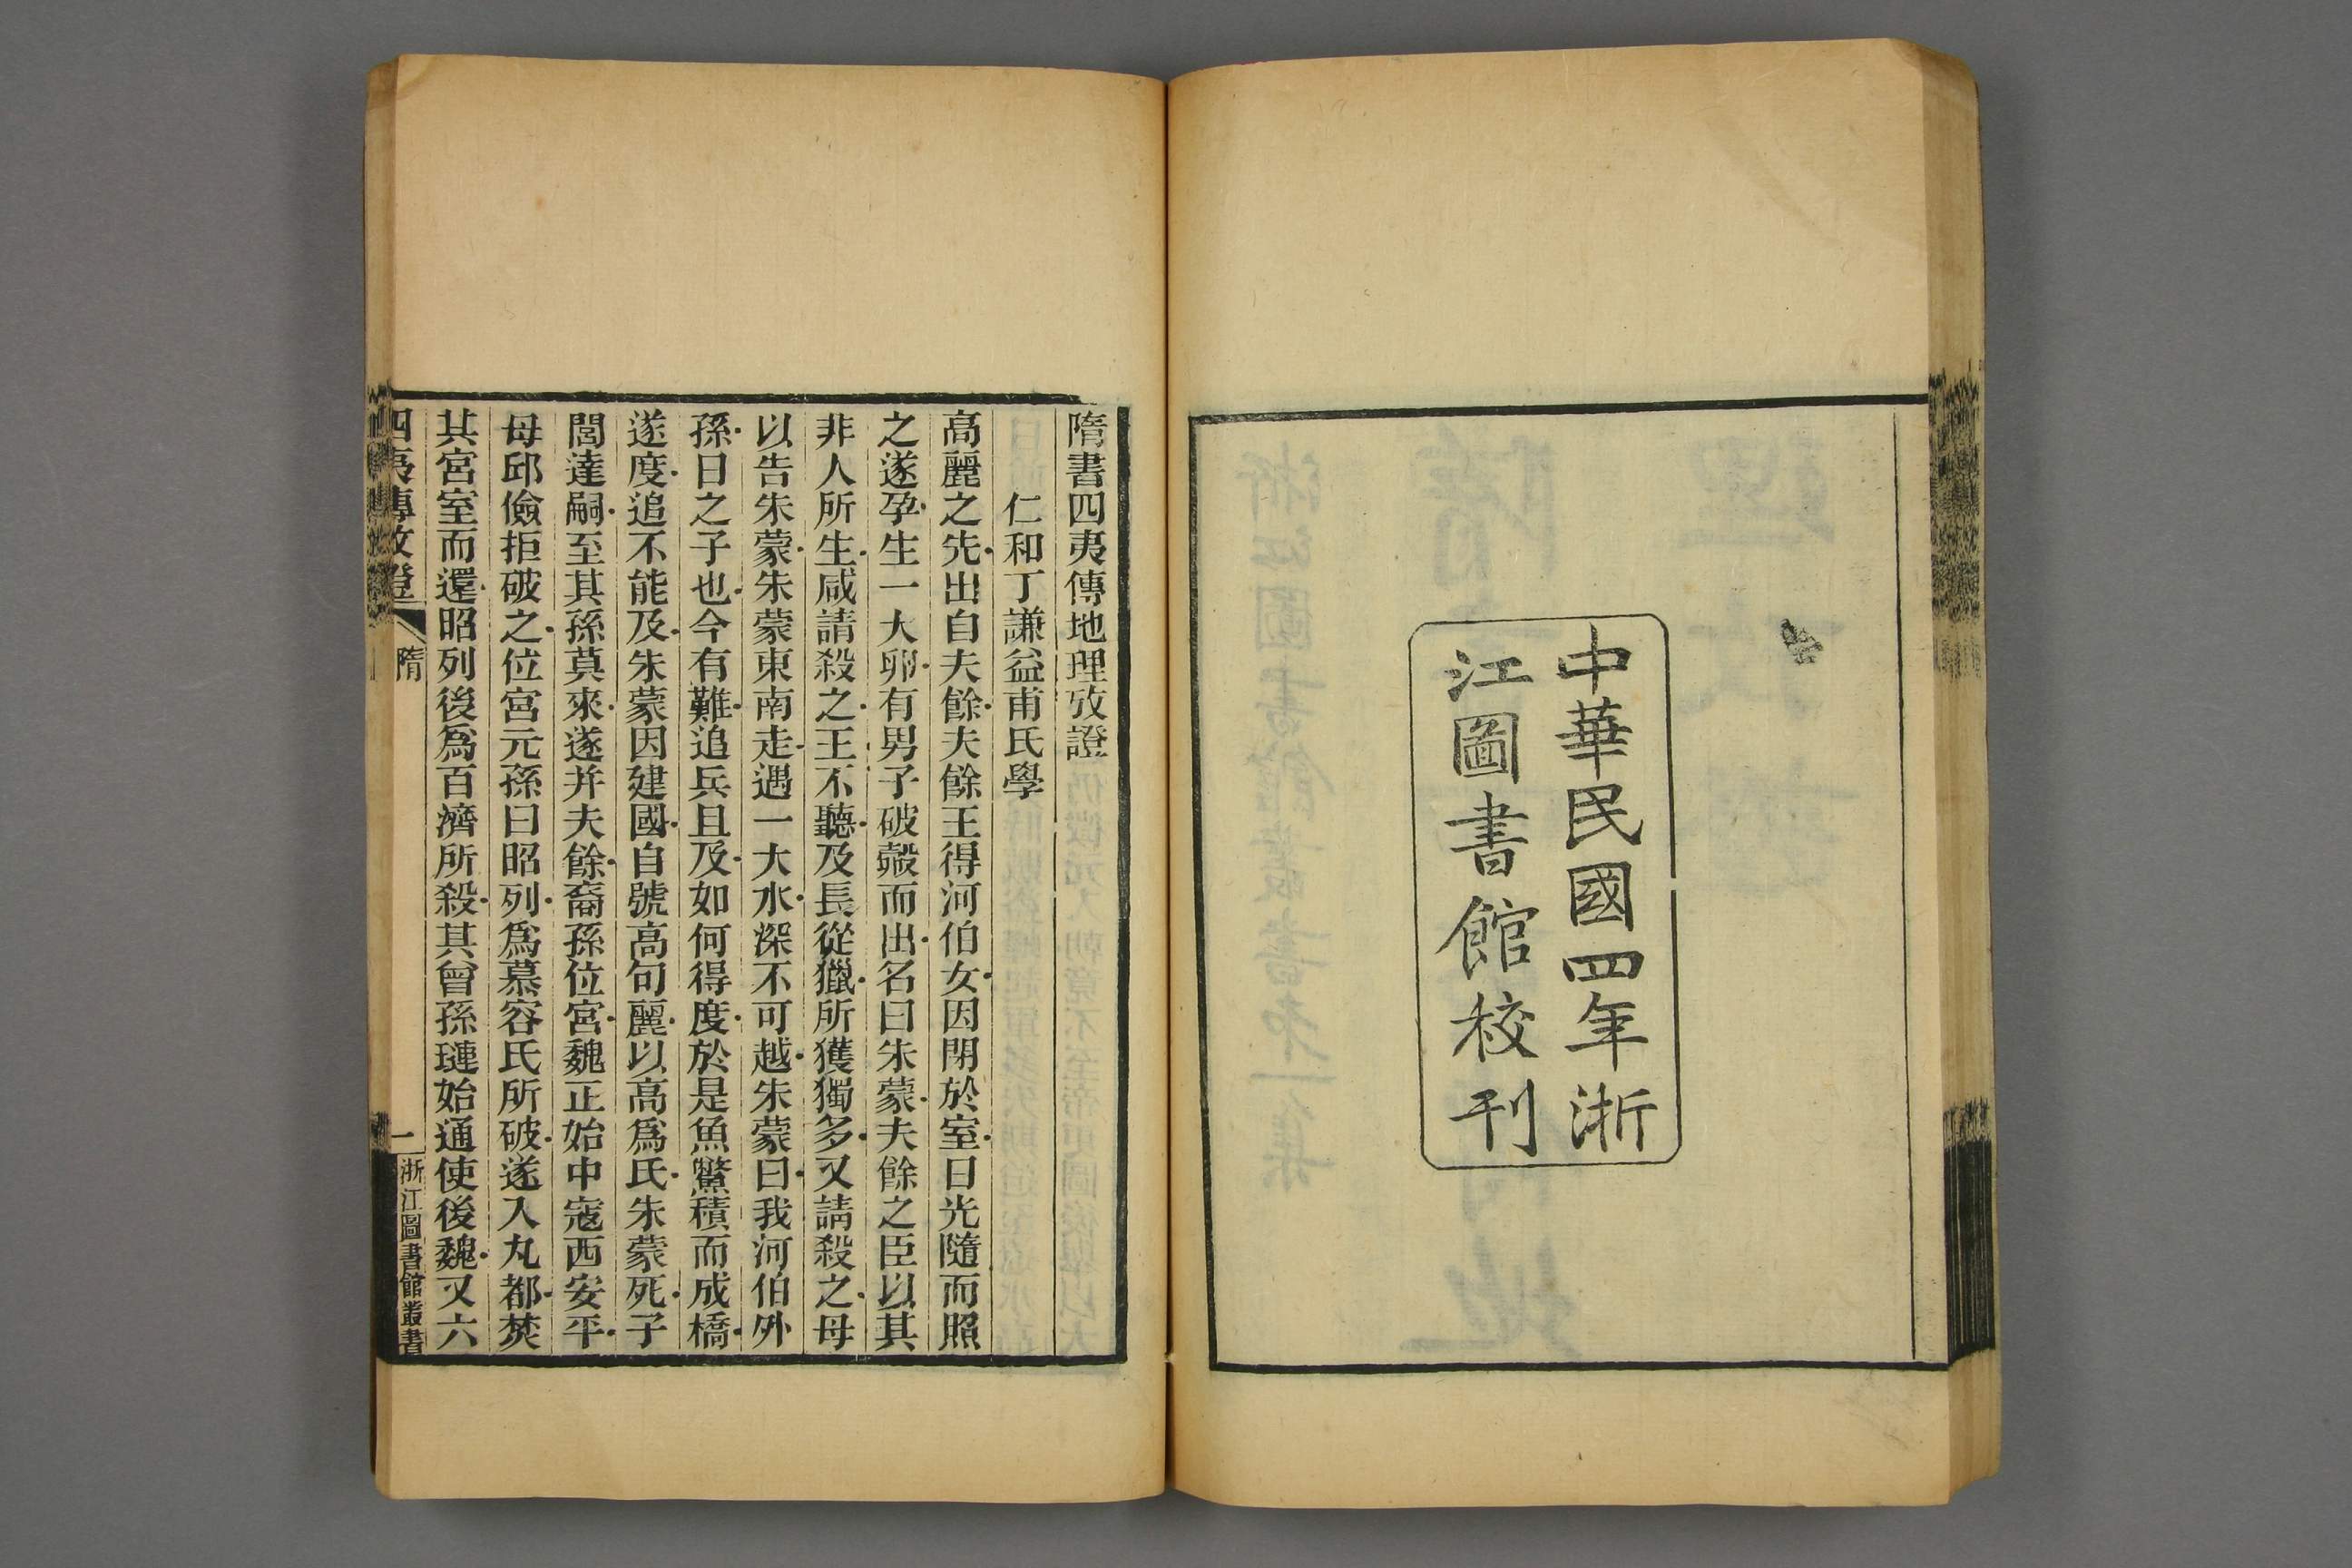 中華民國四年浙
江圖書館校刊
隋書四夷傳地理攷證
仁和丁謙益甫氏學
高麗之先出自夫餘夫餘王得河伯女因閉於室日光隨而照
之遂孕生一大卵有男子破殼而出名曰朱蒙夫餘之臣以其
非人所生咸請殺之王不聽及長從獵所獲獨多又請殺之母
以告朱蒙朱蒙東南走遇一大水深不可越朱蒙曰我河伯外
孫日之子也今有難追兵且及如何得度於是魚鱉積而成橋
遂度追不能及朱蒙因建國自號高句麗以高爲氏朱蒙死子
閭達嗣至其孫莫來遂并夫餘裔孫位宮魏正始中寇西安平
毋邱儉拒破之位宮元孫曰昭列爲慕容氏所破遂入丸都焚
其宮室而還昭列後爲百濟所殺其曾孫璉始通使後魏又六
四夷傳攷證 隋 一 浙江圖書館叢書